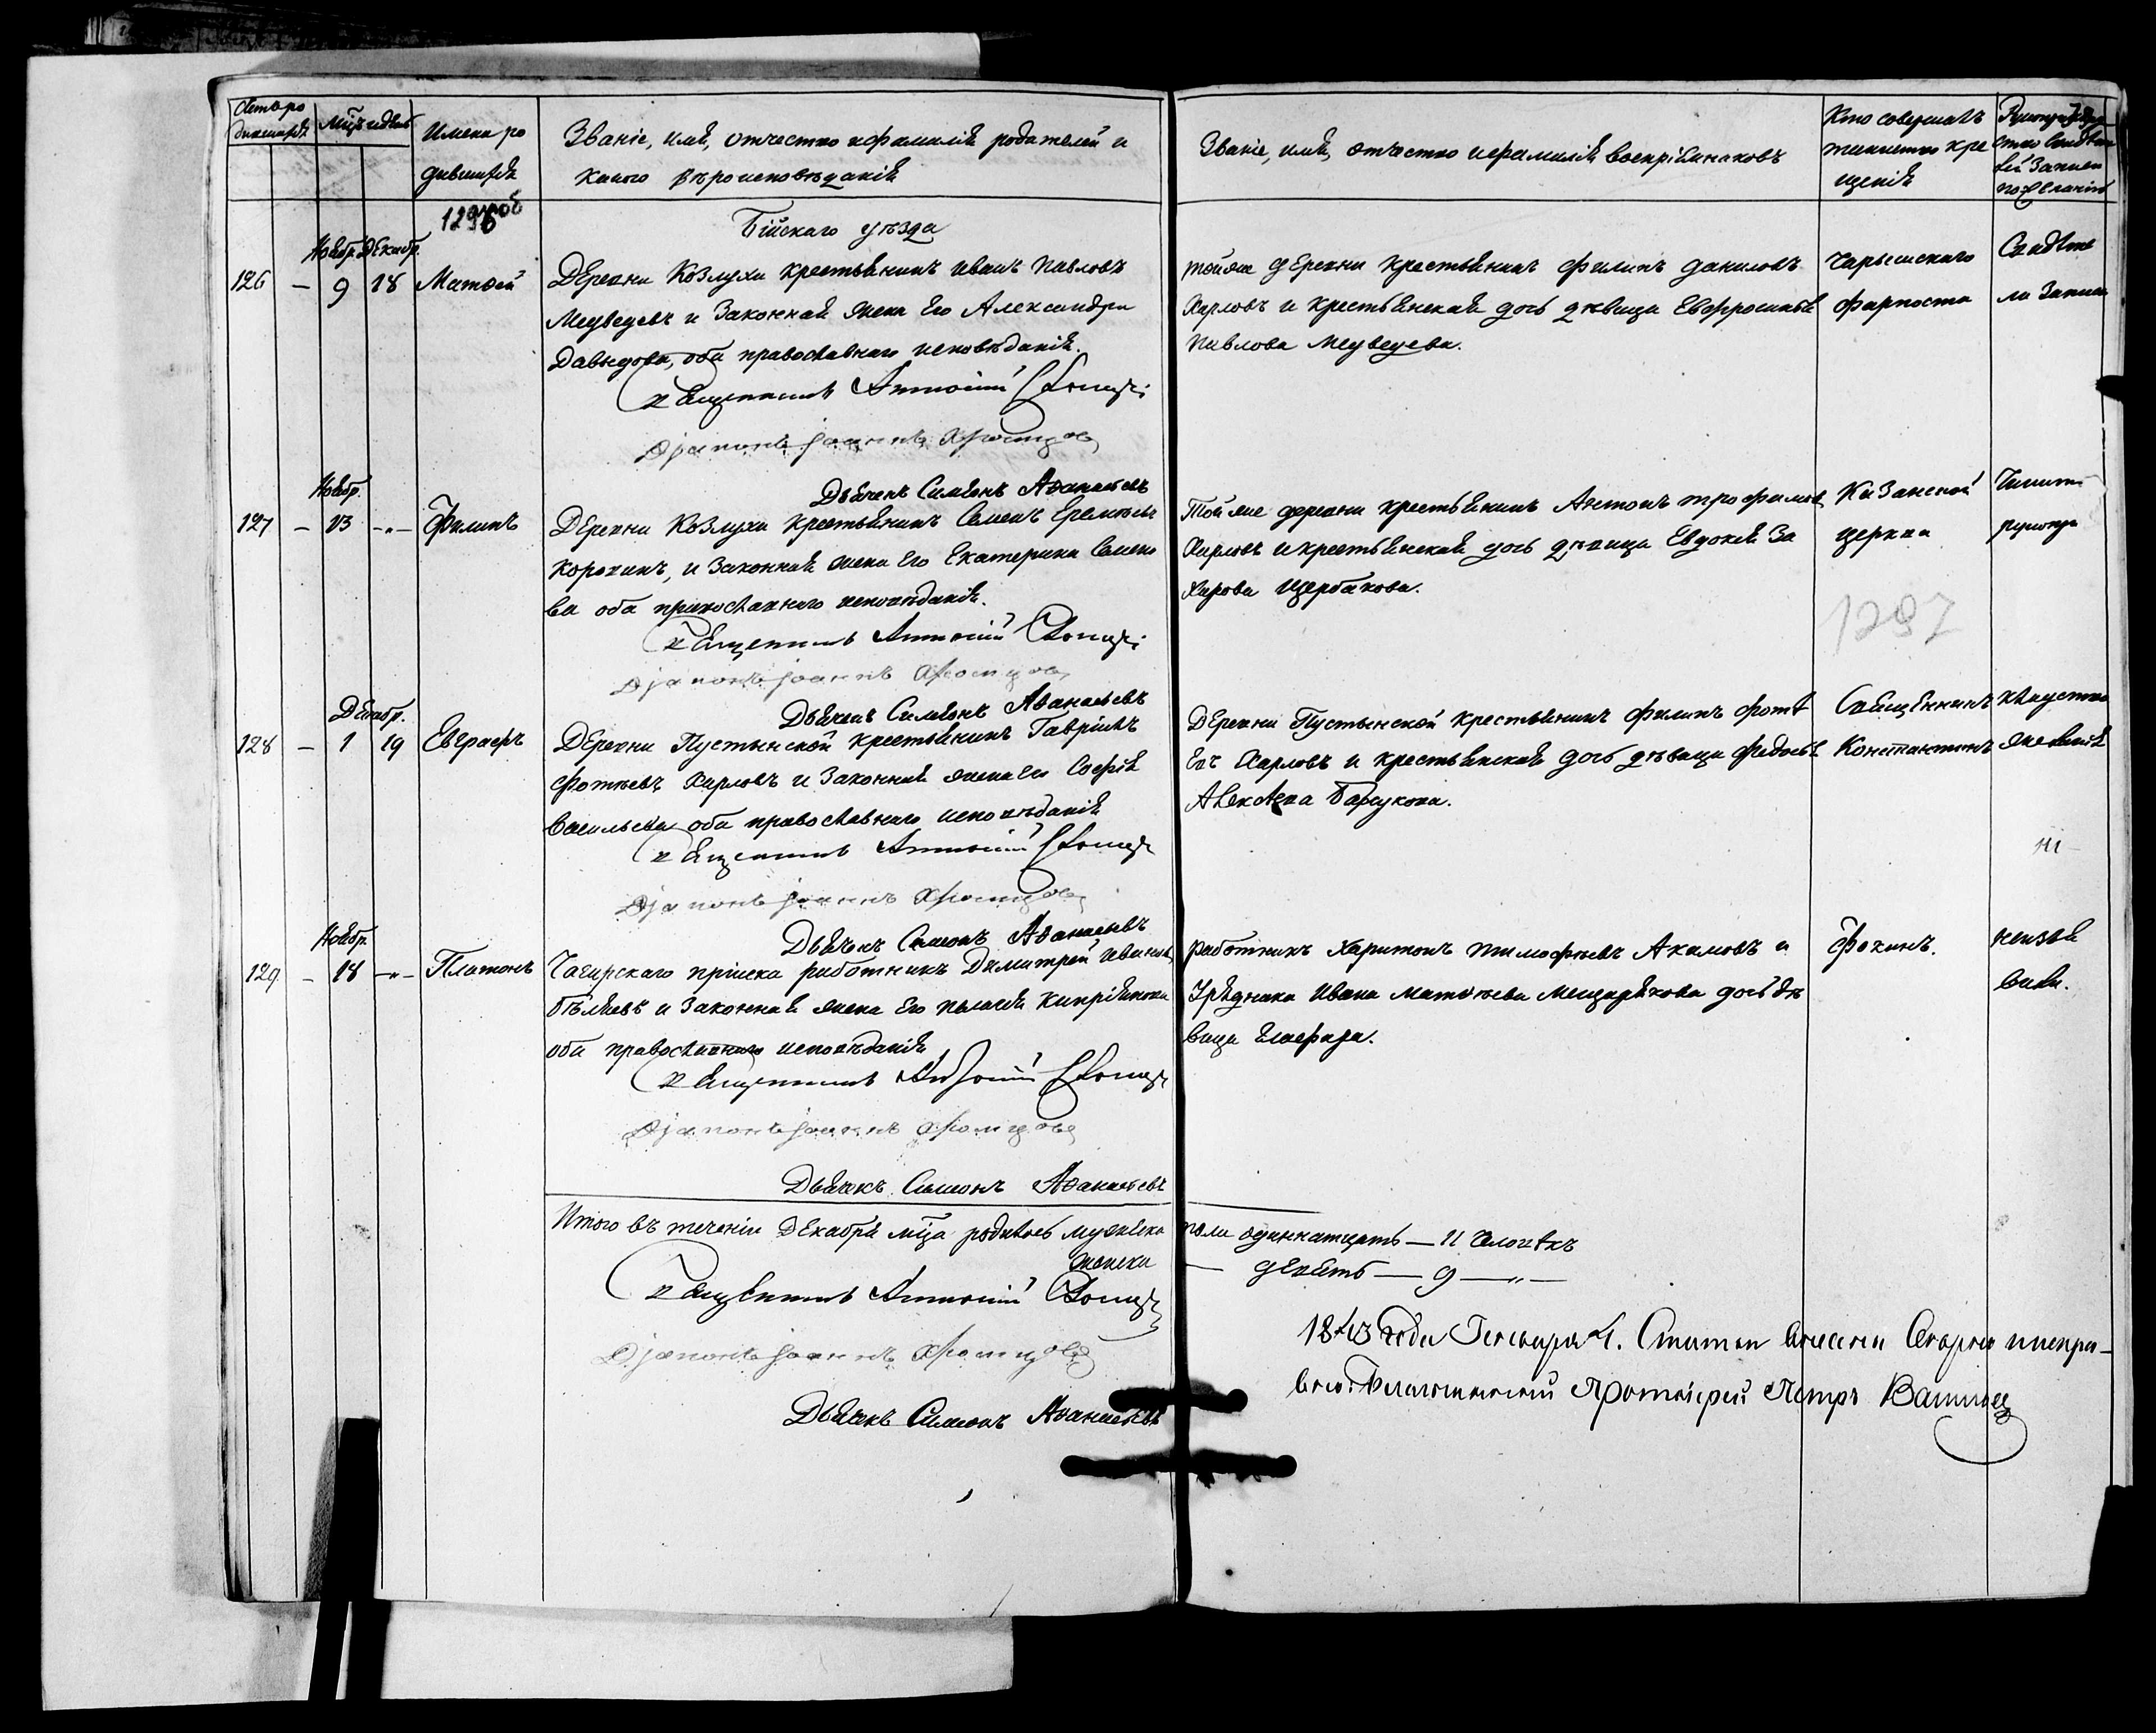 Счетъ ро
дившихся
Мѣц и день
Имена ро
дившихся
Званіе, имя, отчество и фамилія родателей и
какого вѣроисповѣданія
Званіе, имя, отчество и фамилія воспріѣмниковъ
Кто совершалъ
таинство кре
щенія
Рукоприклад
ство свидѣте
лей записи
по желанію
1296 об
Бійскаго уѣзда
Ноябр. Декабр.
126 — 9 18 Матѳей
Деревни Козлухи крестьянинъ Иванъ Павловъ
Медведевъ и законная жена его Александра
Давыдова, оба православнаго исповѣданія.
Священникъ Антоній
Діаконъ Іоаннъ
Дьячекъ Симеонъ Аѳанасьевъ
тойже деревни крестьянинъ Филипъ Даниловъ
Харловъ и крестьянская дочь дѣвица Евфросинья
Павлова Медведева.
Чарышскаго
форпоста
Свидѣте
ли записи
Ноябр.
127 — 23 -"- Филипъ
Деревни Козлухи крестьянинъ Семенъ Еремѣевъ
Коровинъ, и законная жена его Екатерина Семено
ва оба православнаго исповѣданія.
Священникъ Антоній
Діаконъ Іоаннъ
Дьячекъ Симеонъ Аѳанасьевъ
Той же деревни крестьянинъ Антонъ Трофимовъ
Харловъ и крестьянская дочь дѣвица Евдокія За
харова Щербакова.
Казанской
церкви
1297
Декабр.
128 — 1 19 Евграфъ
Деревни Пустынской крестьянинъ Гавріилъ
Фотѣевъ Харловъ и законная жена его Софія
Васильева оба православнаго исповѣданія
Священникъ Антоній
Діаконъ Іоаннъ
Дьячекъ Симеонъ Аѳанасьевъ
Деревни Пустынской крестьянинъ Филипъ Фотѣ
евъ Харловъ и крестьянская дочь дѣвица Федосья
Алексѣева Барсукова.
Священникъ
Константинъ
желанія
Ноябр.
129. — 18 -"- Платонъ
Чагирскаго пріиска работникъ Димитрей Ивановъ
Бѣляевъ и законная жена его Пелагія Кипріянова
оба православнаго исповѣданія
Священникъ Антоній
Діаконъ Іоаннъ
Дьячекъ Симеонъ Аѳанасьевъ
работникъ Харитонъ Тимофѣевъ Акамовъ и
Урядника Ивана Матѳѣева Мещарякова дочь дѣ
вица Глафира.
Фокинъ.
неизъя
вили.
Итого въ теченіи Декабря мѣца родилось мужеска пола одиннатцать — 11 человѣкъ
женска — девять — 9 —"—
Священникъ Антоній
Діаконъ Іоаннъ
Дьячекъ Симеонъ Аѳанасьевъ
1843 года Генваря 4.
Благочинный Протоіерей Петръ